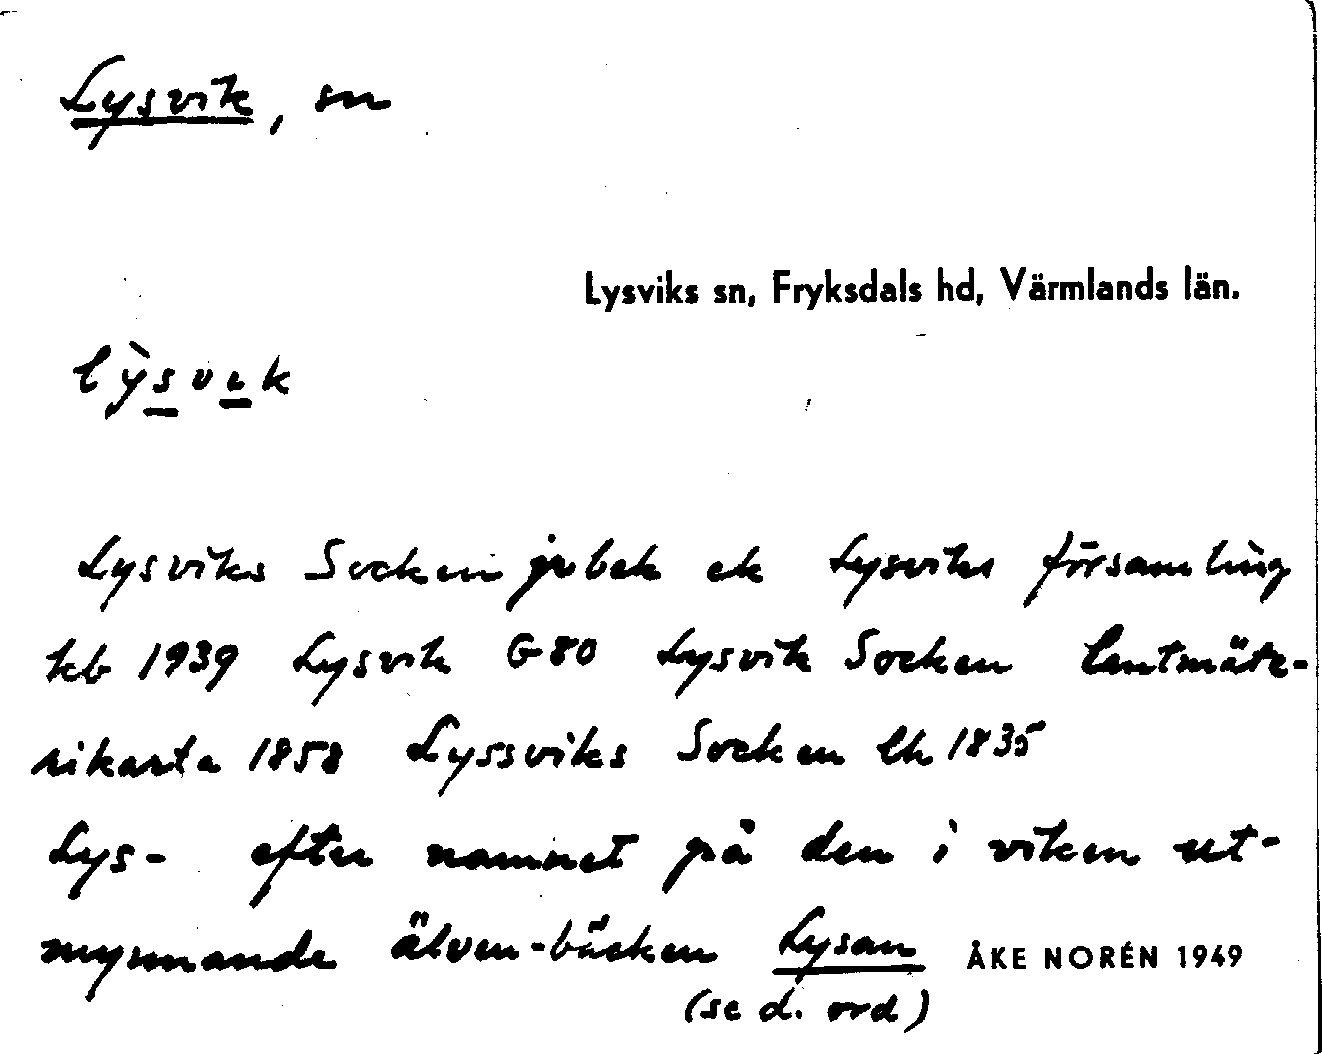 Lysvik, sn
Lysviks sn, Fryksdals hd, Värmlands län.
lỳsvιk
Lysviks Socken jobek ek Lysviks församling
kb 1939 Lysvik G 80 Lysvik Socken lantmäte-
rikarta 1858 Lyssviks Socken lk 1835
Lys- efter namnet på den i viken ut-
mynnande älven-bäcken Lysan ÅKE NORÉN 1949
(se d. ord)